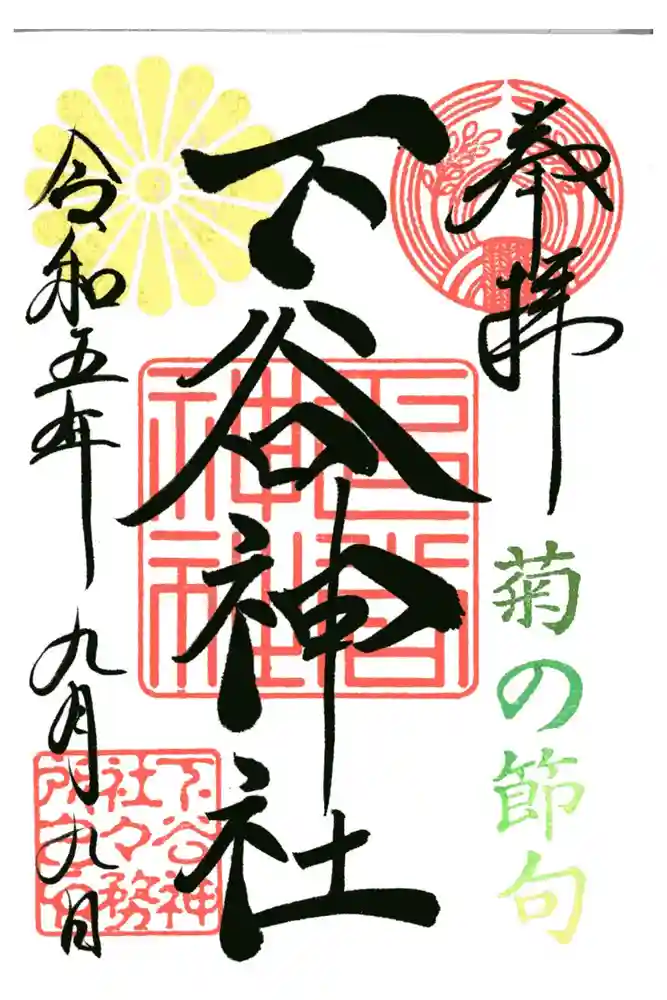 奉拝
菊の節句
下谷神社
下谷神社
下谷神
社々務
所之印
令和五年九月九日